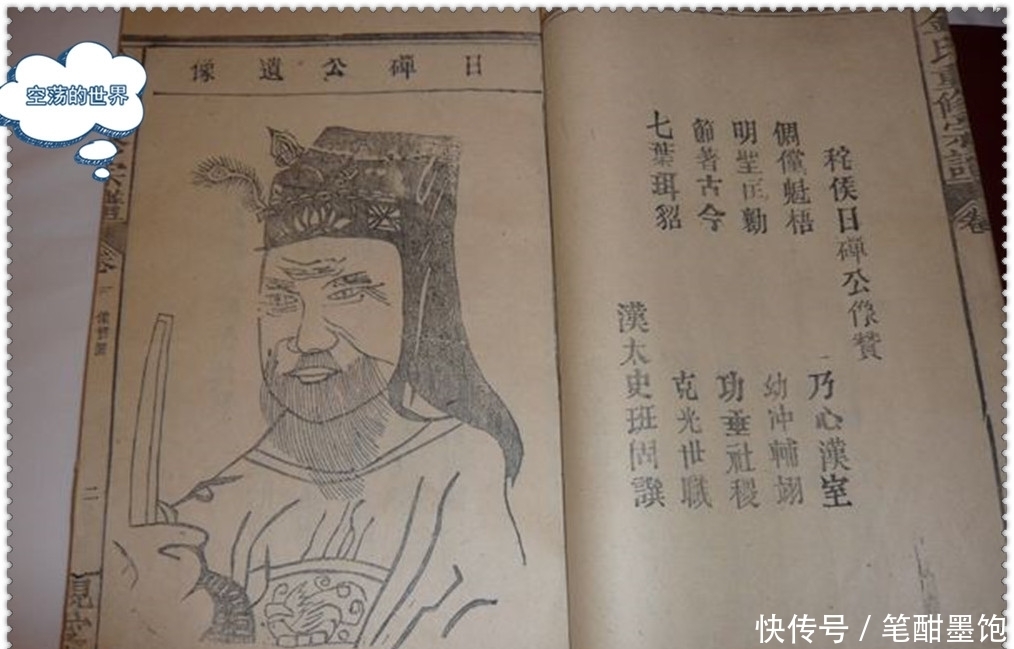 空荡的世界
日磾公遺像
二
金氏重修宗譜
卷
秺侯日磾公像贊
倜儻魁梧 乃心漢室
明聖匡勷 幼冲輔翊
節著古今 功垂社稷
七葉珥貂 克光世職
漢太史班固譔
快传号 / 笔酣墨饱